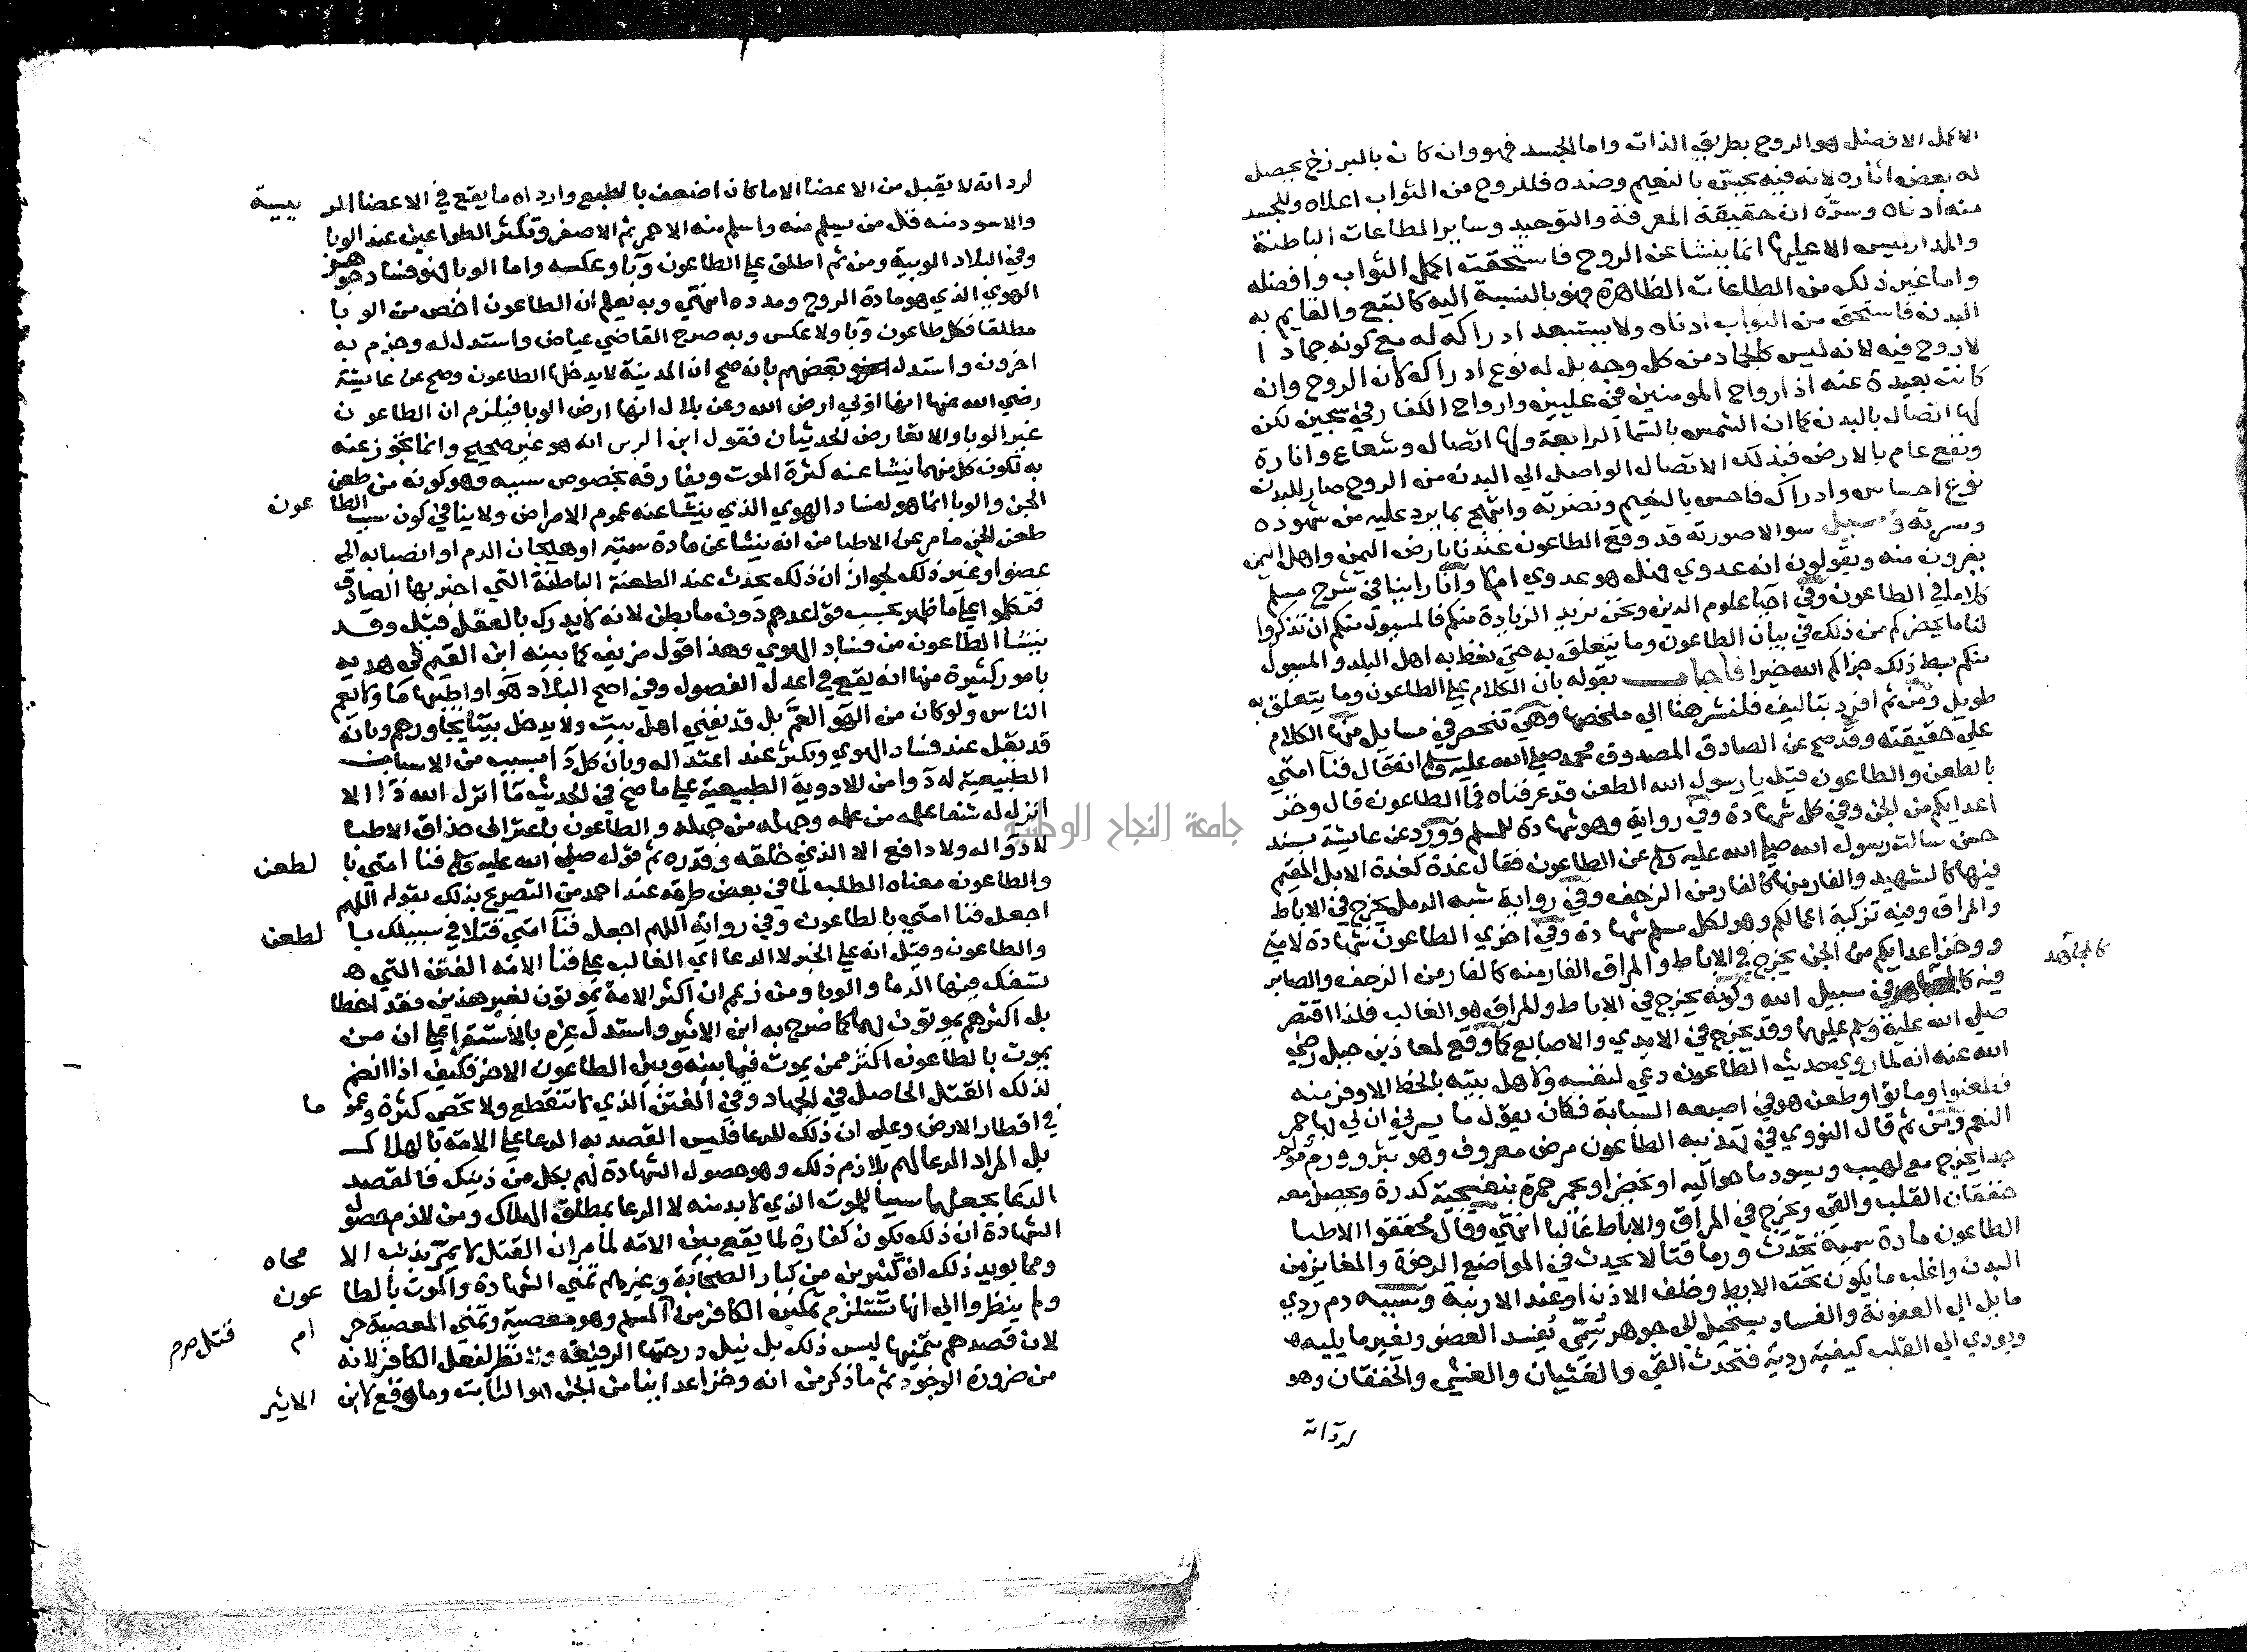 الاكمل الافضل هو الروح بطريق الذات واما الجسد فهو وان كان بالبرزخ يحصل
له بعض اثاره لانه فيه يحس بالنعيم وضده فللروح من الثواب اعلاه وللجسد
منه ادناه وسره ان حقيقة المعرفة والتوحيد وساير الطاعات الباطنة
والمدار ليس الا عليها انما ينشا عن الروح فاستحقت اكمل الثواب وافضله
واما غير ذلك من الطاعات الظاهرة فهو بالنسبة اليه كالتبع والقايم به
البدن فاستحق من الثواب ادناه ولا يستبعد ادراكه له مع كونه جمادا
لا روح فيه لانه ليس كالجماد من كل وجه بل له نوع ادراك لان الروح وان
كانت بعيدة عنه اذ ارواح المومنين في عليين وارواح الكفار في سجين لكن
لها اتصال بالبدن كما ان الشمس بالسما الرابعة ولها اتصال وشعاع وانارة
ونفع عام بالارض فبذلك الاتصال الواصل الي البدن من الروح صار للبدن
نوع احساس وادراك فاحس بالنعيم ونضرته وابتهج بما يرد عليه من شهوده
ومسرته وسيل سوالا صورته قد وقع الطاعون عندنا بارض اليمن واهل اليمن
يفرون منه ويقولون انه عدوي فهل هو عدوي ام لا وانا راينا في شرح مسلم
كلاما في الطاعون وفي احيا علوم الدين ونحن نريد الزيادة منكم فالمسول منكم ان تذكروا
لنا ما يحضركم من ذلك في بيان الطاعون وما يتعلق به حتي نعظ به اهل البلد والمسول
منكم بسط ذلك جزاكم الله خيرا فاجاب بقوله بان الكلام علي الطاعون وما يتعلق به
طويل ومن ثم افرد بتاليف فلنشر هنا الي ملخصها وهي تنحصر في مسايل منها الكلام
علي حقيقته وقد صح عن الصادق المصدوق محمد صلي الله عليه وسلم انه قال فنا امتي
بالطعن والطاعون قيل يا رسول الله الطعن قد عرفناه فما الطاعون قال وخز
اعدايكم من الجن وفي كل شهادة وفي رواية وهو شهادة للمسلم وورد عن عايشة بسند
حسن سالت رسول الله صلي الله عليه وسلم عن الطاعون فقال غدة كغدة الابل المقيم
فيها كالشهيد والفار منها كالفار من الزحف وفي رواية شبه الدمل يخرج في الاباط
والمراق وفيه تزكية اعمالكم وهو لكل مسلم شهادة وفي اخري الطاعون شهادة لامتي
ووخز اعدايكم من الجن يخرج في الاباط والمراق الفار منه كالفار من الزحف والصابر
فيه كالمجاهد في سبيل الله وكونه يخرج في الاباط والمراق هو الغالب فلذا اقتصر
صلي الله عليه وسلم عليها وقد يخرج في الايدي والاصابع كما وقع لمعاذ بن جبل رضي
الله عنه انه لما روي حديث الطاعون دعي لنفسه ولاهل بيته بالحظ الاوفر منه
فطعنوا وماتوا وطعن هو في اصبعه السبابة فكان يقول ما يسرني ان لي بها حمر
النعم ومن ثم قال النووي في تهذيبه الطاعون مرض معروف وهو بثر وورم مولم
جدا يخرج مع لهيب ويسود ما حواليه او يخضر او يحمر حمرة بنفسجية كدرة ويحصل معه
خفقان القلب والقي ويخرج في المراق والاباط غالبا انتهي وقال محققوا الاطبا
الطاعون مادة سمية تحدث ورما قتالا يحدث في المواضع الرخوة والمغابن من
البدن واغلب ما يكون تحت الابط وخلف الاذن او عند الارنبة وسببه دم ردي
مايل الي العفونة والفساد يستحيل الي جوهر سمي يفسد العضو ويغير ما يليه
ويودي الي القلب كيفية ردية فتحدث القي والغثيان والغشي والخفقان وهو
لرداته
لرداته لا يقبل من الاعضا الا ما كان اضعف بالطبع وارداه ما يقع في الاعضا الرييسة
والاسود منه قل من يسلم منه واسلمه الاحمر ثم الاصفر وتكثر الطواعين عند الوبا
وفي البلاد الوبية ومن ثم اطلق علي الطاعون وبا وعكسه واما الوبا فهو فساد جوهر
الهوي الذي هو مادة الروح ومدده انتهي وبه يعلم ان الطاعون اخص من الوبا
مطلقا فكل طاعون وبا ولا عكس وبه صرح القاضي عياض واستدل له وجزم به
اخرون واستدل بعضهم بانه صح ان المدينة لا يدخلها الطاعون وصح عن عايشة
رضي الله عنها انها اوبي ارض الله وعن بلال انها ارض الوبا فيلزم ان الطاعون
غير الوبا والا تعارض الحديثان فقول ابن الاثير انه هو غير صحيح وانما تجوز عنه
به لكون كل منهما ينشا عنه كثرة الموت ويفارقه بخصوص سببه وهو كونه من طعن
الجن والوبا انما هو لفساد الهوي الذي ينشا عنه عموم الامراض ولا ينافي كون سبب الطاعون
طعن الجن ما مر عن الاطبا من انه ينشا عن مادة سمية او هيجان الدم او انصبابه الي
عضو او غير ذلك لجواز ان ذلك يحدث عند الطعنة الباطنة التي اخبر بها الصادق
فتكلموا علي ما ظهر بحسب قواعدهم دون ما بطن لانه لا يدرك بالعقل قيل وقد
ينشا الطاعون من فساد الهوي وهذا قول مزيف كما بينه ابن القيم في هديه
بامور كثيرة منها انه يقع في اعدل الفصول وفي اصح البلاد هوا واطيبها ما ولا يعم
الناس ولو كان من الهوا لعم بل قد يفني اهل بيت ولا يدخل بيتا يجاورهم وبانه
قد يقل عند فساد الهوي ويكثر عند اعتداله وبان كل دا بسبب من الاسباب
الطبيعية له دوا من الادوية الطبيعية علي ما صح في الحديث ما انزل الله دا الا
انزل له شفا علمه من علمه وجهله من جهله والطاعون باعتراف حذاق الاطبا
لا دوا له ولا دافع الا الذي خلقه وقدره ثم قوله صلي الله عليه وسلم فنا امتي بالطعن
والطاعون معناه الطلب لما في بعض طرقه عند احمد من التصريح بذلك بقوله اللهم
اجعل فنا امتي بالطاعون وفي رواية اللهم اجعل فنا امتي قتلا في سبيلك بالطعن
والطاعون وقيل انه علي الخبر لا الدعا اي الغالب علي فنا الامه الفتن التي
تسفك فيها الدما والوبا ومن زعم ان اكثر الامة يموتون لغير هذين فقد اخطا
بل اكثرهم يموتون بهما كما صرح به ابن الاثير واستدل غيره بالاستقرا علي ان من
يموت بالطاعون اكثر ممن يموت فيما بينه وبين الطاعون الاخر فكيف اذا انضم
لذلك القتل الحاصل في الجهاد وفي الفتن الذي لا تنقطع ولا تحصي كثرة وعموما
في اقطار الارض وعلي ان ذلك للدعا فليس القصد به الدعا علي الامة بالهلاك
بل المراد الدعا لهم بلازم ذلك وهو حصول الشهادة لهم بكل من ذينك فالقصد
الدعا بجعلهما سببا للموت الذي لا بد منه لا الدعا بمطلق الهلاك ومن لازم حصول
الشهادة ان ذلك يكون كفارة لما يقع بين الامه لما مر ان القتل لا يمر بذنب الا محاه
ومما يويد ذلك ان كثيرين من كبار الصحابة وغيرهم تمني الشهادة والموت بالطاعون
ولم ينظروا الي انها تستلزم تمكين الكافر من قتل المسلم وهو معصية وتمني المعصية حرام
لان قصدهم بتمنيها ليس ذلك بل نيل درجتها الرفيعة ولا نظر لفعل الكافر لانه
من ضرورة الوجود ثم ما ذكر من انه وخز اعداينا من الجن هو الثابت وما وقع لابن الاثير